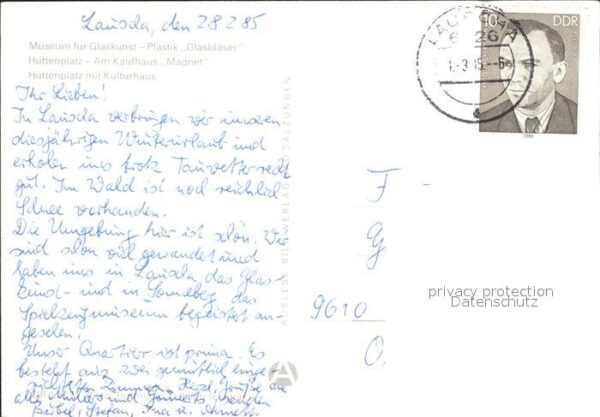 Lauscha, den 28 2 85
LAUSCHA
6426
1.-3.85.-6
10
DDR
1985
Museum für Glaskunst – Plastik „Glasbläser"
Hüttenplatz – Am Kaufhaus „Magnet"
Hüttenplatz mit Kulturhaus
Ihr Lieben!
In Lauscha verbringen wir unseren
diesjährigen Winterurlaub und
erholen uns trotz Tauwetter recht
gut. Im Wald ist noch reichlich
Schnee vorhanden.
Die Umgebung hier ist schön. Wir
sind schon viel gewandert und
haben uns in Lauscha das Glas-
kunst- und in Sonneberg das
Spielzeugmuseum begeistert an-
gesehen.
Unser Quartier ist prima. Es
besteht aus zwei gemütlich einge-
richteten Zimmern. Herzl. Grüße an
alle
Bärbel, Stefan, Ina u. Annett
AUSLESE-BILD-VERLAG BAD SALZUNGEN
F
G
9610
O.
privacy protection
Datenschutz